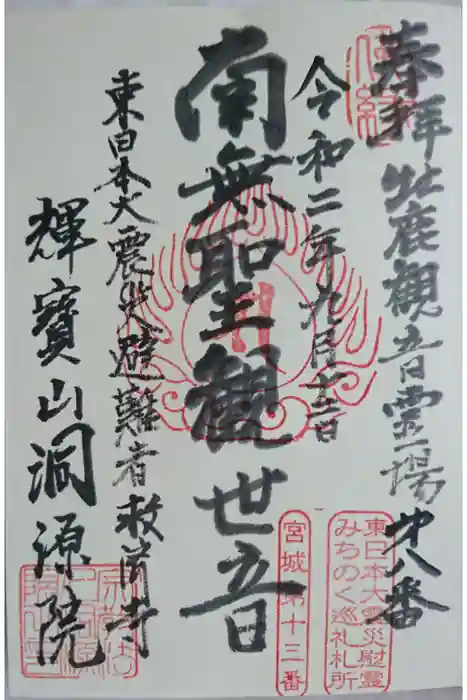 奉拝 牡鹿観音霊場 第八番
令和二年九月十三日
南無聖観世音
東日本大震災避難者救済寺
輝寶山洞源院
東日本大震災慰霊
みちのく巡礼札所
宮城第十三番